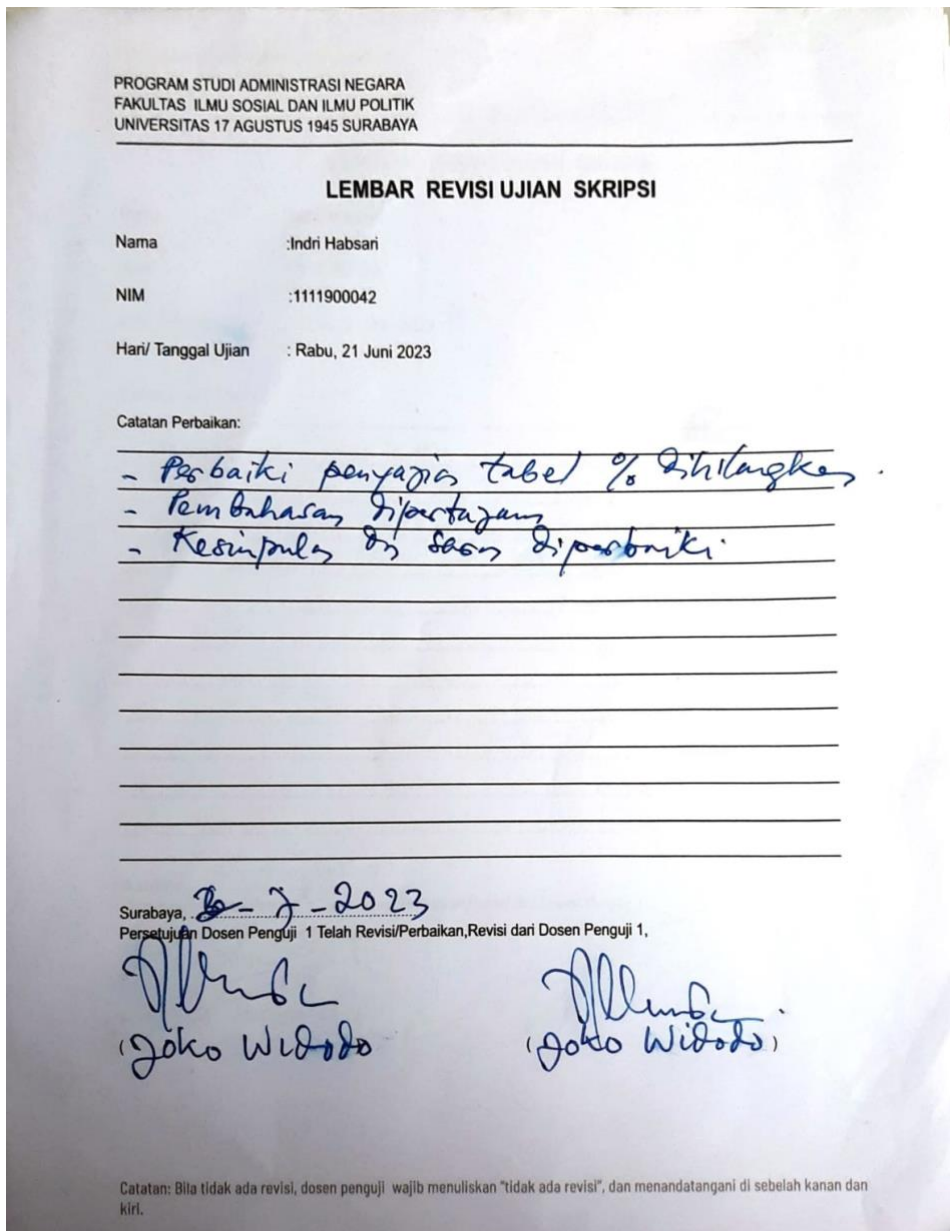 PROGRAM STUDI ADMINISTRASI NEGARA
FAKULTAS ILMU SOSIAL DAN ILMU POLITIK
UNIVERSITAS 17 AGUSTUS 1945 SURABAYA
LEMBAR REVISI UJIAN SKRIPSI
Nama :Indri Habsari
NIM :1111900042
Hari/ Tanggal Ujian : Rabu, 21 Juni 2023
Catatan Perbaikan:
- Perbaiki penyajian tabel % dihilangkan.
- Pembahasan dipertajam
- Kesimpulan dan saran diperbaiki.
Surabaya, - 7 - 2023
Persetujuan Dosen Penguji 1 Telah Revisi/Perbaikan,Revisi dari Dosen Penguji 1,
(Joko Widodo) (Joko Widodo)
Catatan: Bila tidak ada revisi, dosen penguji wajib menuliskan "tidak ada revisi", dan menandatangani di sebelah kanan dan
kiri.